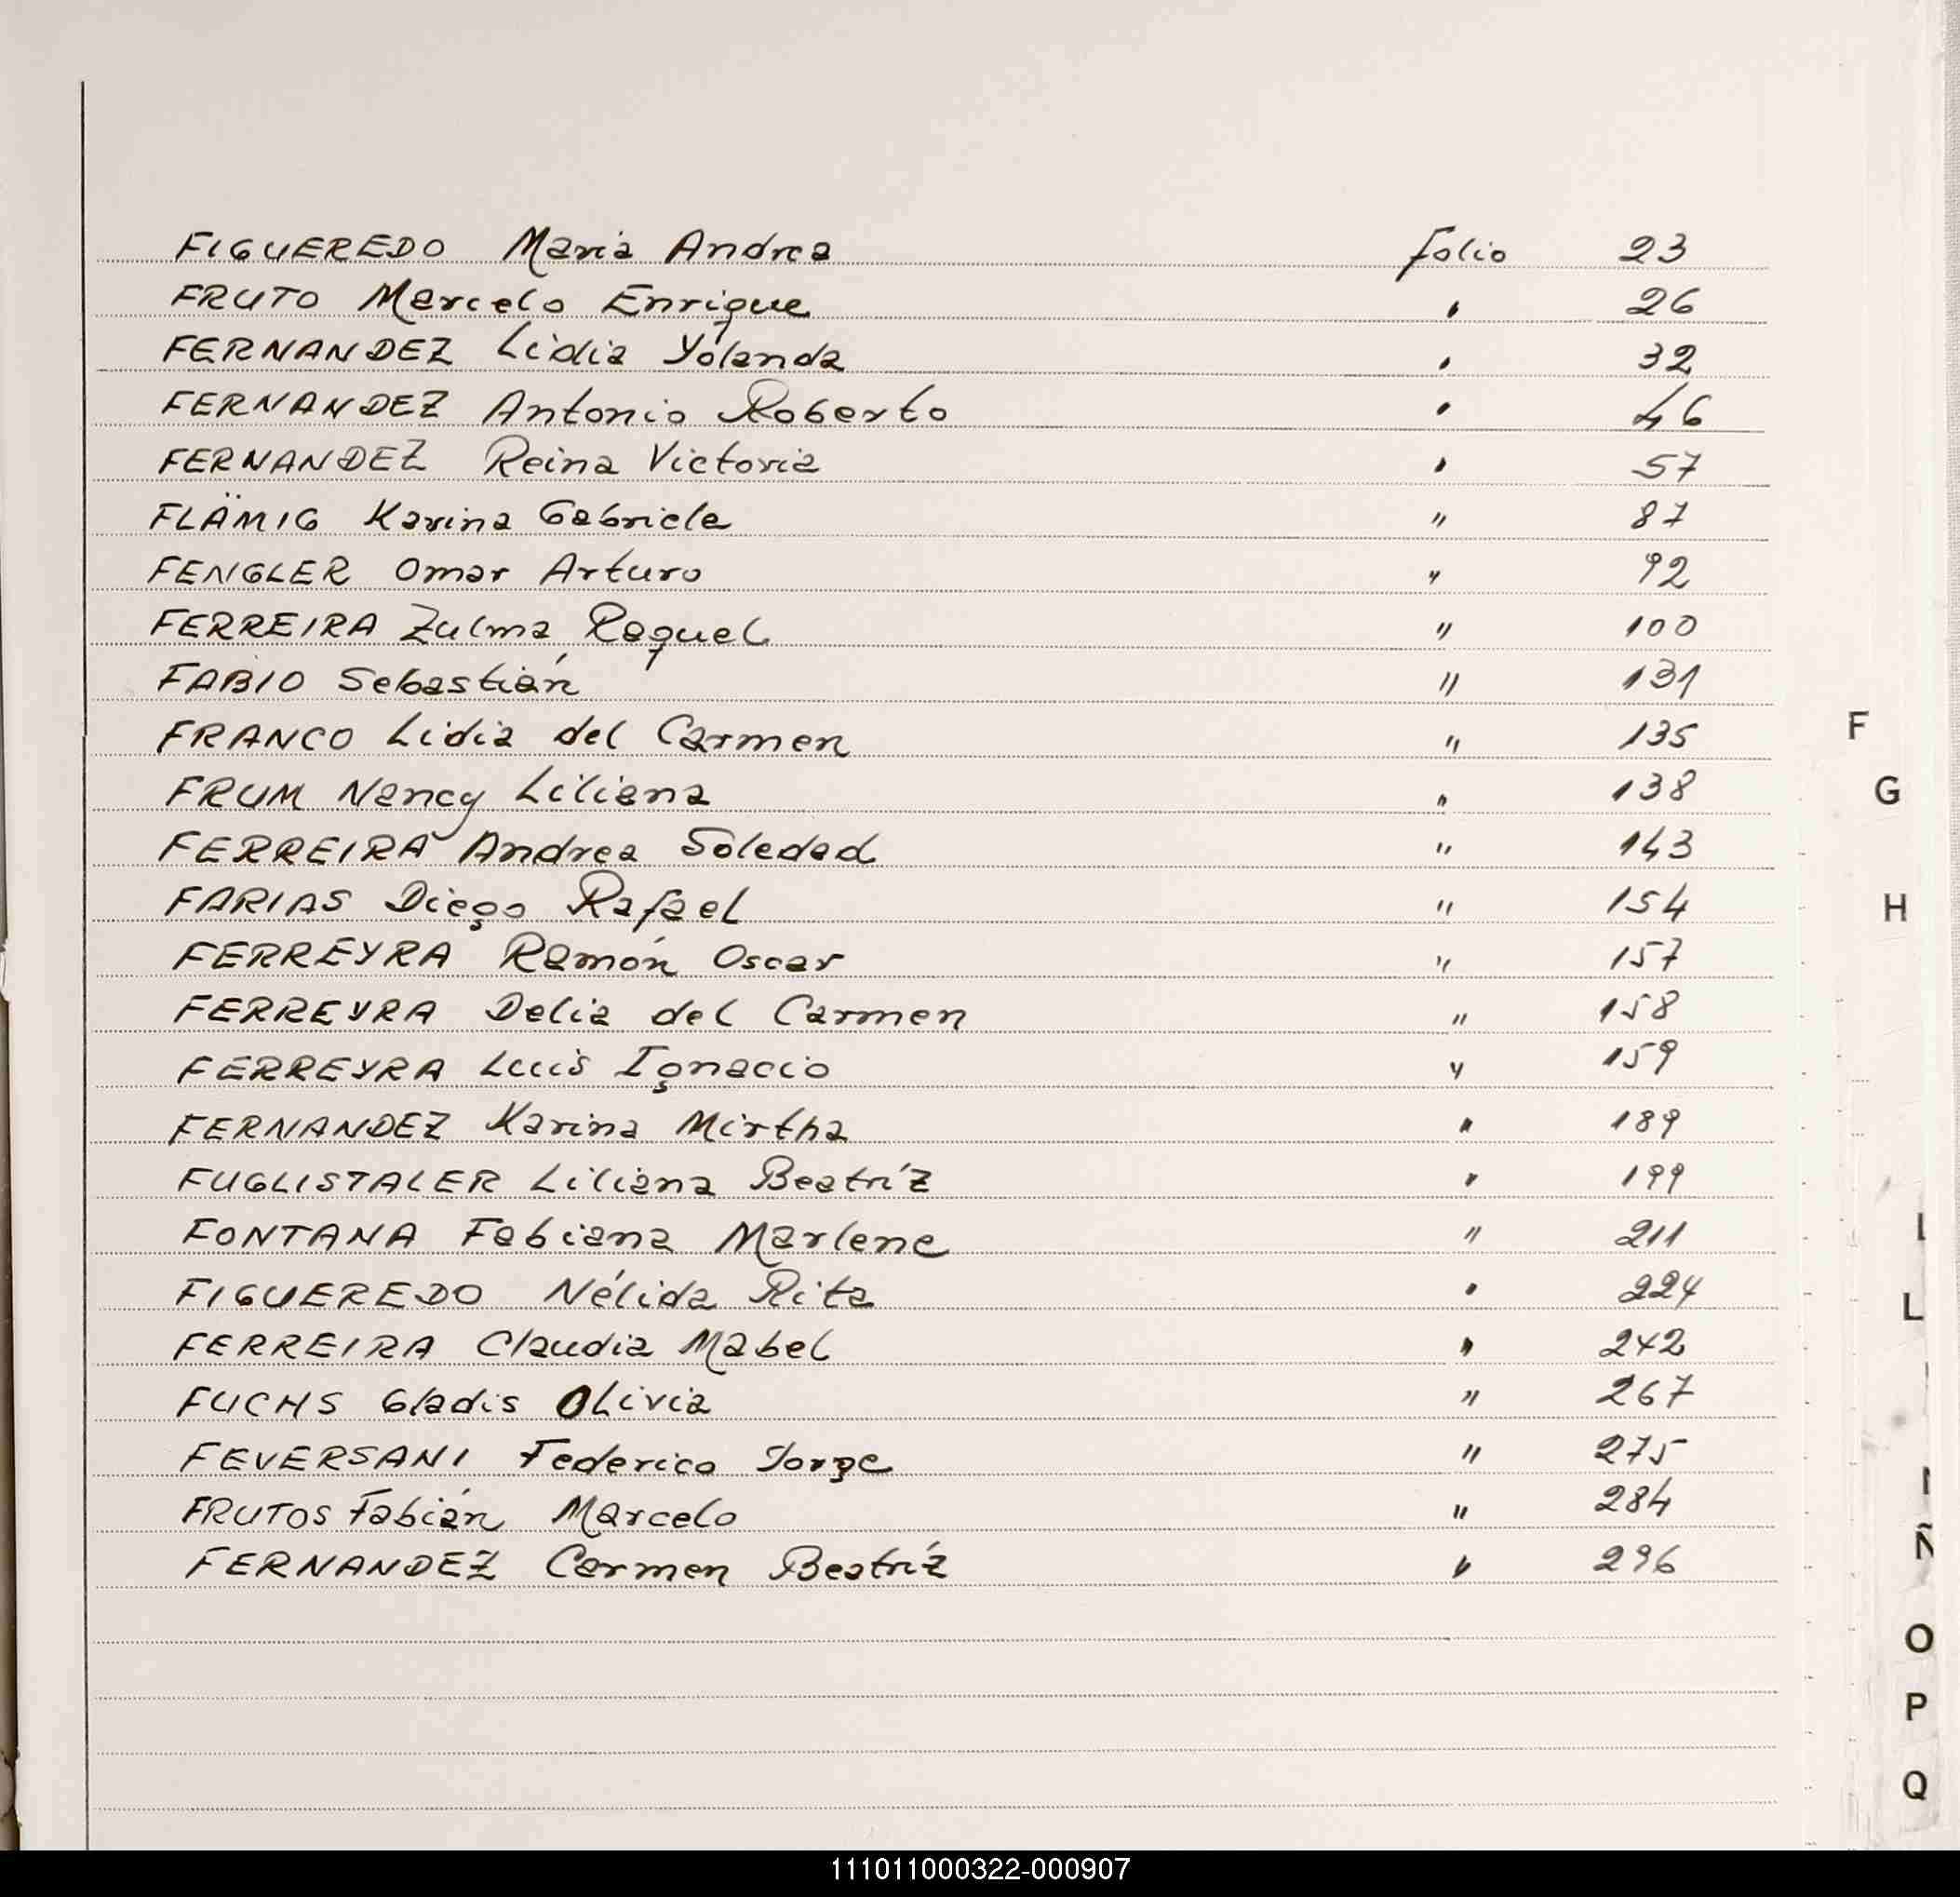 FIGUEREDO Maria Andrea folio 23
FRUTO Marcelo Enrique " 26
FERNANDEZ Lidia Yolanda " 32
FERNANDEZ Antonio Roberto " 46
FERNANDEZ Reina Victoria " 57
FLÄMIG Karina Gabriela " 87
FENGLER Omar Arturo " 92
FERREIRA Zulma Raquel " 100
FABIO Sebastián " 131
FRANCO Lidia del Carmen " 135
FRUM Nancy Liliana " 138
FERREIRA Andrea Soledad " 143
FARIAS Diego Rafael " 154
FERREYRA Ramón Oscar " 157
FERREYRA Delia del Carmen " 158
FERREYRA Luis Ignacio " 159
FERNANDEZ Karina Mirtha " 189
FUGLISTALER Liliana Beatríz " 199
FONTANA Fabiana Marlene " 211
FIGUEREDO Nélida Rita " 224
FERREIRA Claudia Mabel " 242
FUCHS Gladis Olivia " 267
FEVERSANI Federico Jorge " 275
FRUTOS Fabián Marcelo " 284
FERNANDEZ Carmen Beatríz " 296
F
G
H
L
Ñ
O
P
Q
111011000322-000907